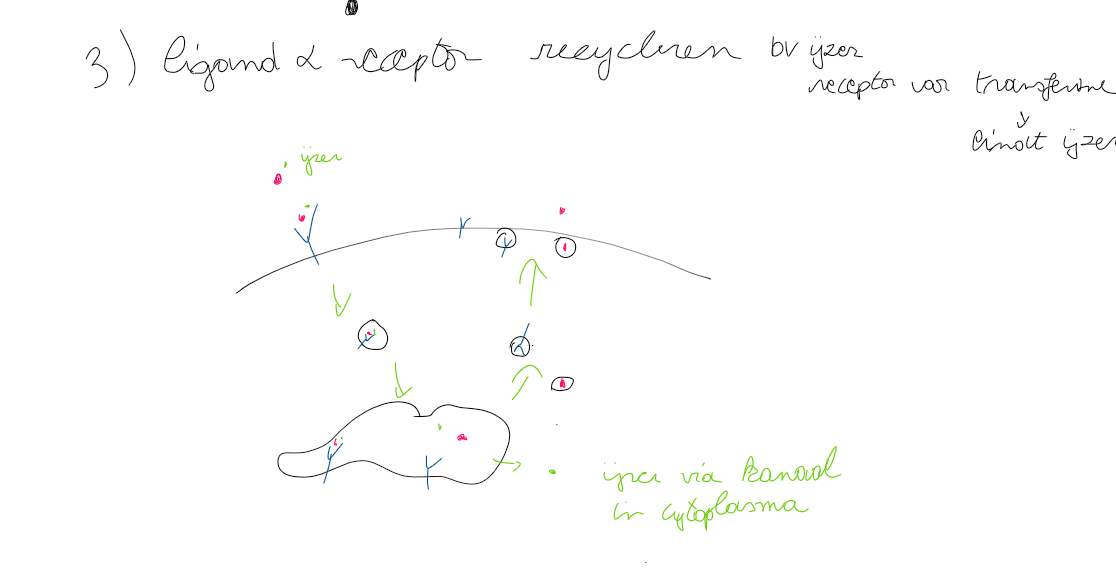 3) ligand & receptor recycleren bv ijzer
receptor voor transferrine
↓
bindt ijzer
ijzer
ijzer via kanaal
in cytoplasma